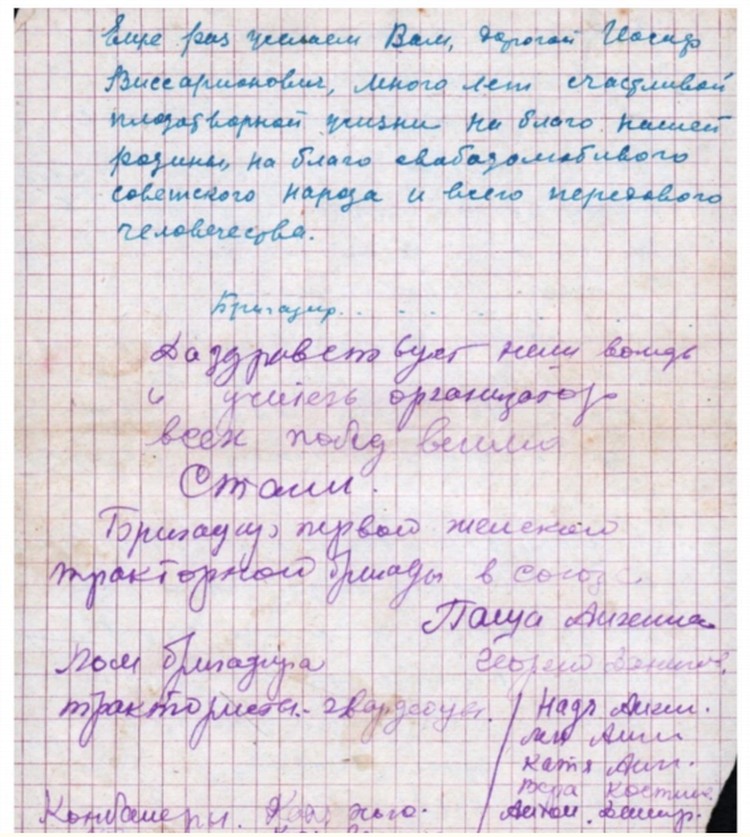 Еще раз желаем Вам, дорогой Иосиф
Виссарионович, много лет счастливой
плодотворной жизни на благо нашей
родины, на благо свободолюбивого
советского народа и всего передового
человечества.
Бригадир . . . .
Да здравствует наш вождь
и учитель организатор
всех побед
Сталин.
Бригадир первой женской
тракторной бригады в союзе
Паша Ангелина
Пом бригадира
трактористы-гвардейцы.
Надя Ангел.
Анг
Катя Анг.
Вера Костин
Антон. Димир.
Комбайнеры.